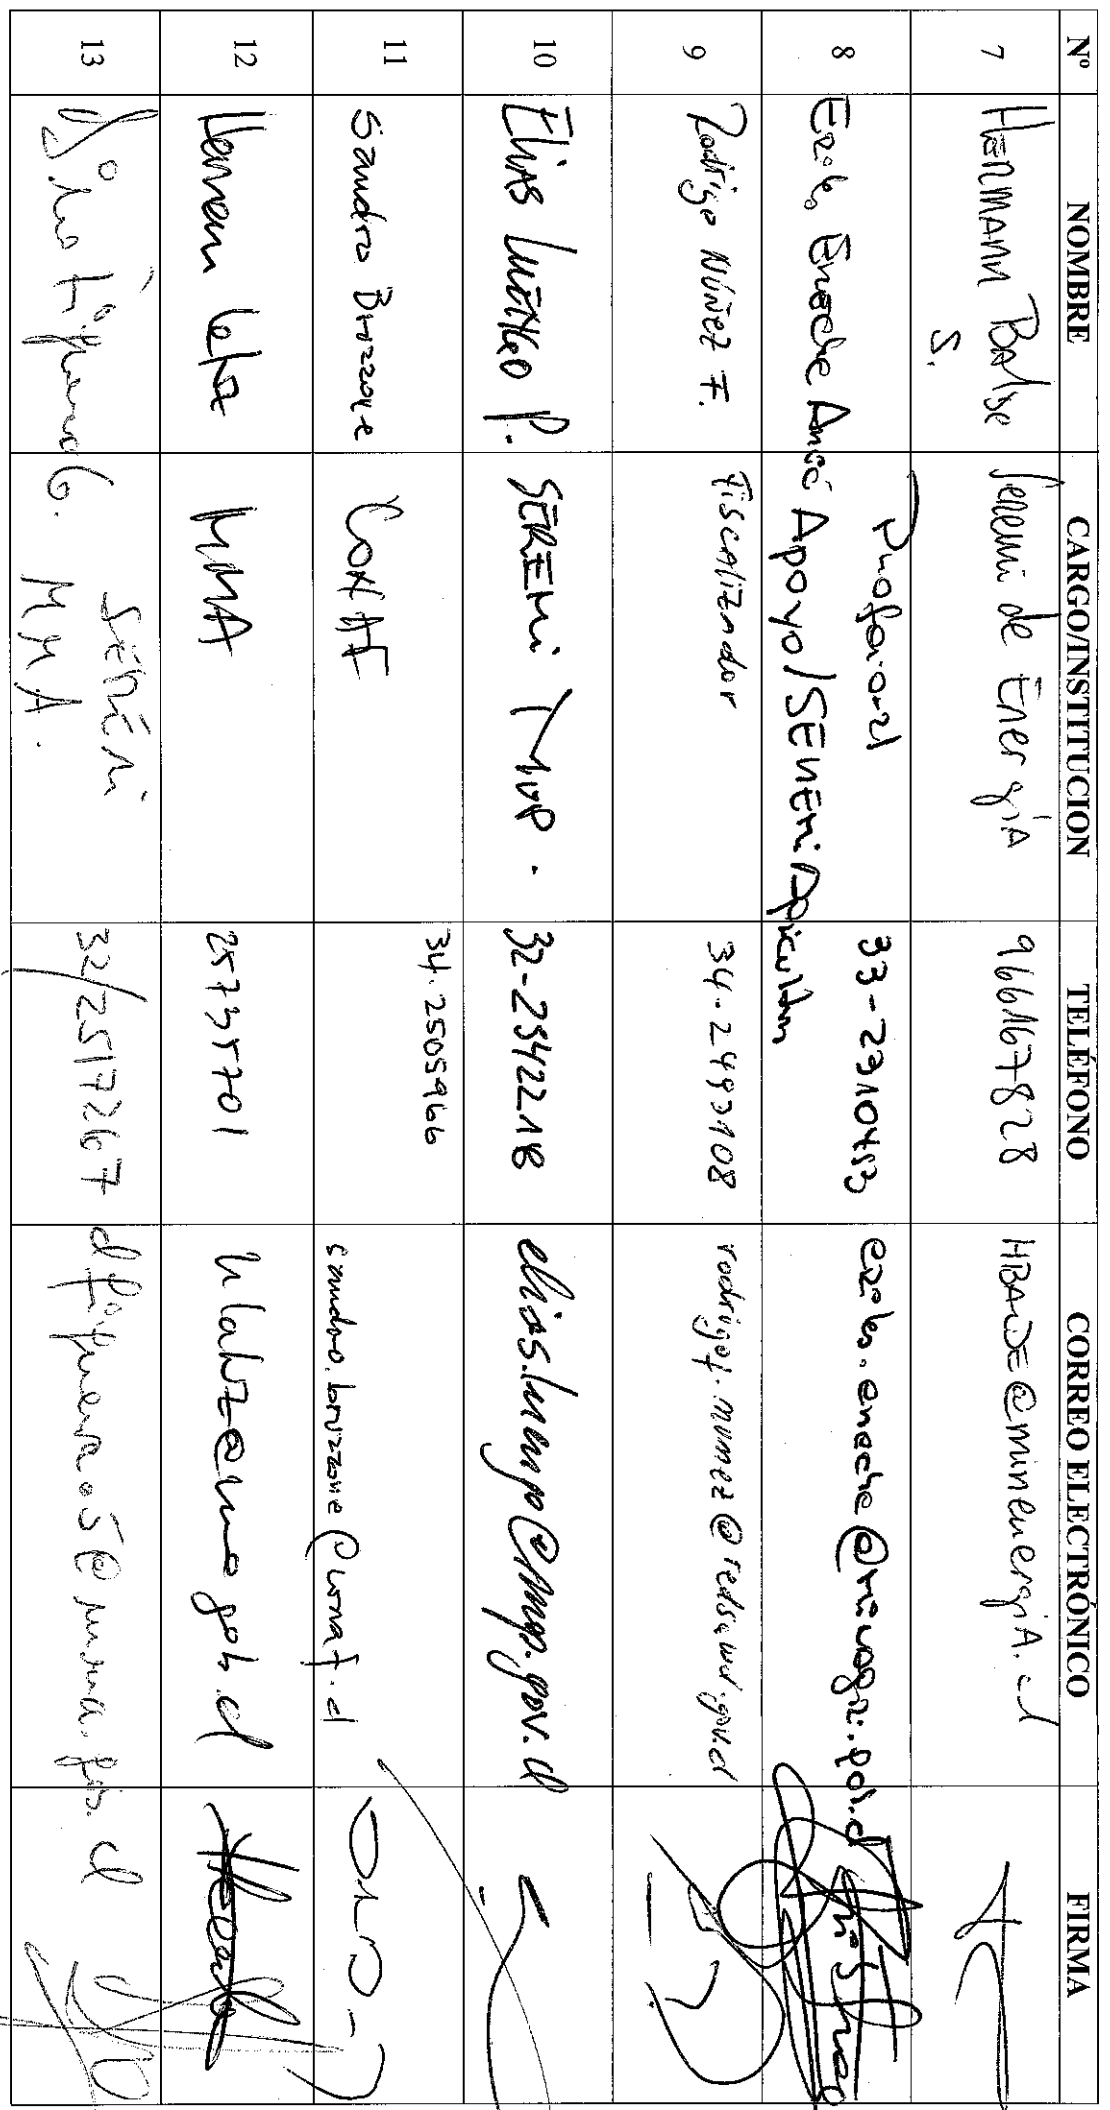 Nº NOMBRE CARGO/INSTITUCION TELÉFONO CORREO ELECTRÓNICO FIRMA
7 HERMANN Balde S. Seremi de EnergíA 966167828 HBALDE@minenergiA.cl
8 Enoche Profesional Apoyo/SEREMI Agricultura 33-2310453
9 Rodrigo NÚÑEZ F. Fiscalizador 34-2493108 rodrigof.nunez@redsalud.gov.cl
10 ELIAS LUENGO P. SEREMI MOP. 32-2542218 elias.luengo@mop.gov.cl
11 Sandro Bruzzone CONAF 34.2505966 sandro.bruzzone@conaf.cl
12 MMA 25735701
13 Figueroa G. SEREMI MMA. 32/2517267